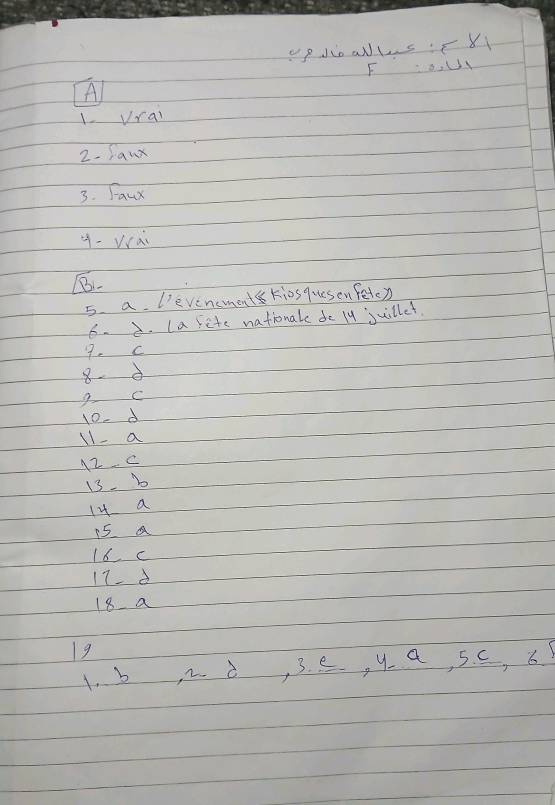 الاسم: عبدالله
المادة: F
A
1- Vrai
2- Faux
3. Faux
4- Vrai
B-
5- a- l'évènement « Kiosques en Fête »
6- d- la fête nationale de 14 juillet.
7- c
8- d
9- c
10- d
11- a
12- c
13- b
14 a
15 a
16 c
17- d
18- a
19
1. b , 2- d , 3. e , 4- a , 5. c , 6